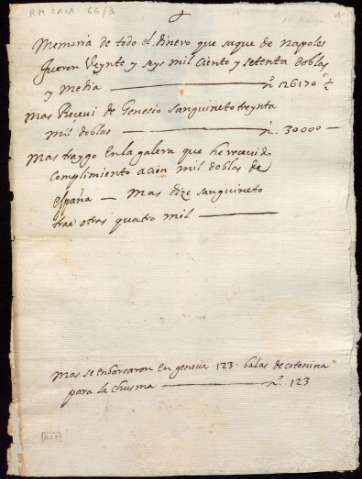 RM CAJA 66/3
Memoria de todo el dinero que saque de napoles
fueron Veynte y seys mil ciento y setenta doblas
y media — nº 26170 ½
mas Recevi de Genesio Sanguineto treynta
mil doblas — nº 30000 —
mas traygo en la galera que he recevido
complimiento a cien mil doblas de
españa — mas dize sanguineto
trae otras quatro mil —
mas se enbarcaron en genova 123 balas de cotonina
para la chusma — nº 123